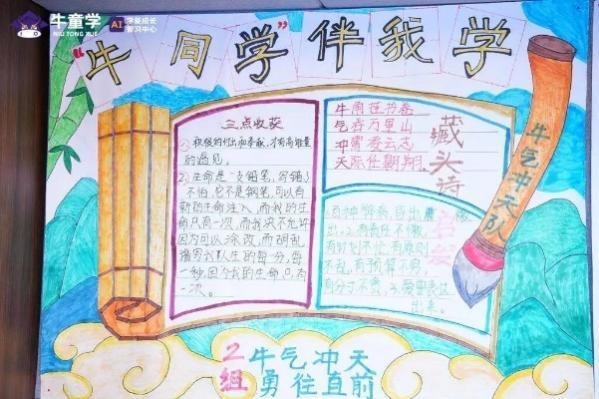 牛童学
NIU TONG XUE
AI
学能成长
智习中心
“牛同学”伴我学
三点收获
①积极的付出和奉献,才有高能量
的遇见。
②生命是一支铅笔,写错了
不怕,它不是钢笔,可以有
新的生命注入,而我的生
命只有一次,而我决不允许
因为可以涂改,而胡乱
描写我人生的每一分,每
一秒,因为我的生命只有
一次。
气吞万里山
冲霄凌云志
天际任翱翔
藏头诗
有预算不穷
出来。
牛气冲天队
2组
牛气冲天
勇往直前